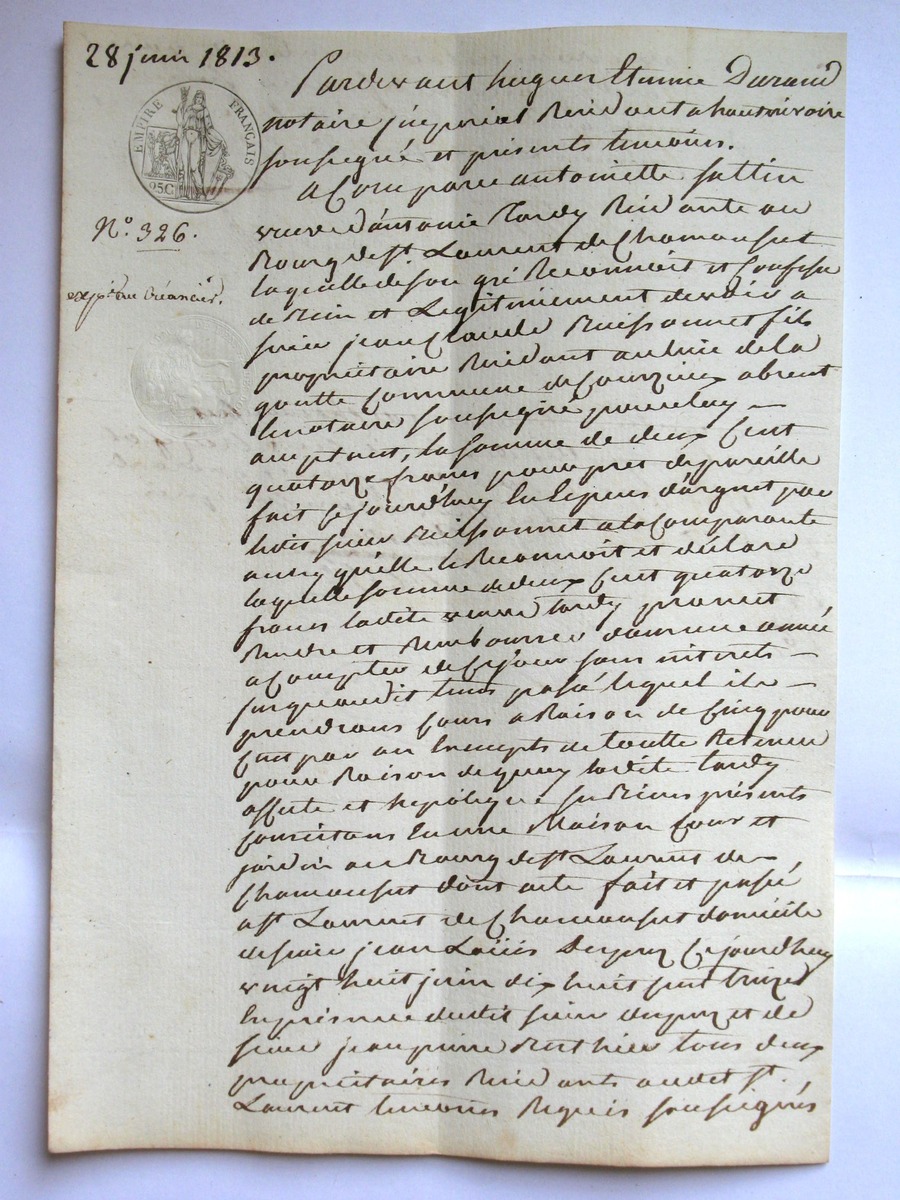 28 juin 1813.
EMPIRE FRANÇAIS
25 C
N.º 326.
expé. au Créancier.
Pardevant hugues Etienne Durand
notaire jmperial Residant a hauterivoire
soussigné et présents temoins.
a Comparu antoinette sattin
veuve d'antoine Tardy Residante au
Bourg de St. Laurent de Chamousset
laquelle de son gré Reconnoit et Confesse
de Bien et Legitimement devoir a
sieur jean Claude Buissonnet fils
propriétaire Residant au lieu de la
goutte Commune de Courzieu absent
le notaire soussigné pour luy
acceptant, la somme de deux Cent
quatorze francs pour pret de pareille
fait ce jourd'huy En Especes d'argent par
ledit sieur Buissonnet a la Comparante
ainsy qu'elle le Reconnoit et déclare
laquelle somme de deux Cent quatorze
francs ladite veuve tardy promet
Rendre et Rembourser dans une année
a Compter de Ce jour sans interets
jusqu'audit tems passé lequel ils
prendrons Cours a Raison de Cinq pour
Cent par an Exempts de toutte Retenue
pour Raison de quoy ladite tardy
affecte et hepoteque ses Biens présents
Consistans En une Maison Cour et
jardin au Bourg de St. Laurent de
Chamousset dont acte fait et passé
a St. Laurent de Chamousset domicile
de sieur jean Loüis Ce jourd'huy
vingt huit juin dix huit sent treize
En présence dudit sieur et de
sieur jean pierre Berthier tous deux
propriétaires Residants audit St.
Laurent temoins Requis soussignés